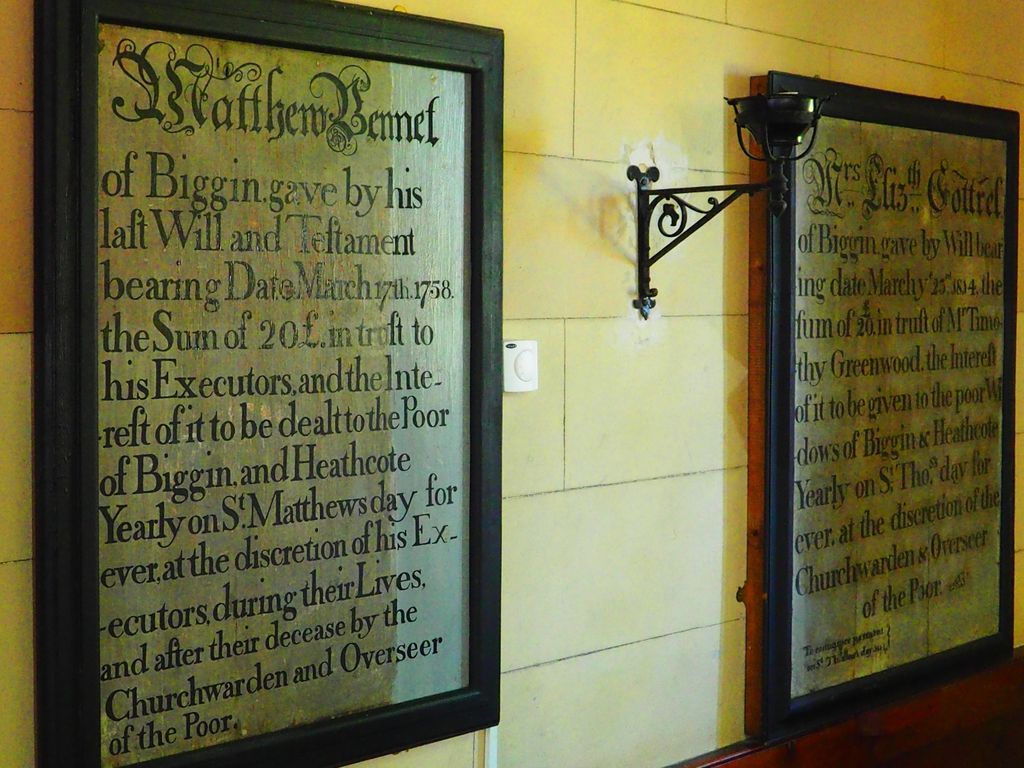 Matthew Bennet
of Biggin, gave by his
laſt Will and Teſtament
bearing Date March 17th. 1758.
the Sum of 20£. in truſt to
his Executors, and the Inte-
-reſt of it to be dealt to the Poor
of Biggin, and Heathcote
Yearly on St. Matthews day for
ever, at the discretion of his Ex-
-ecutors, during their Lives,
and after their decease by the
Churchwarden and Overseer
of the Poor.
Mrs. Eliz.th Gottrel,
of Biggin, gave by Will bear
ing date March ye 25th 1834, the
ſum of 20, in truſt of Mr Timo-
-thy Greenwood, the Intereſt
of it to be given to the poor Wi
dows of Biggin & Heathcote
Yearly on St. Thos. day for
ever, at the discretion of the
Churchwarden & Overseer
of the Poor.